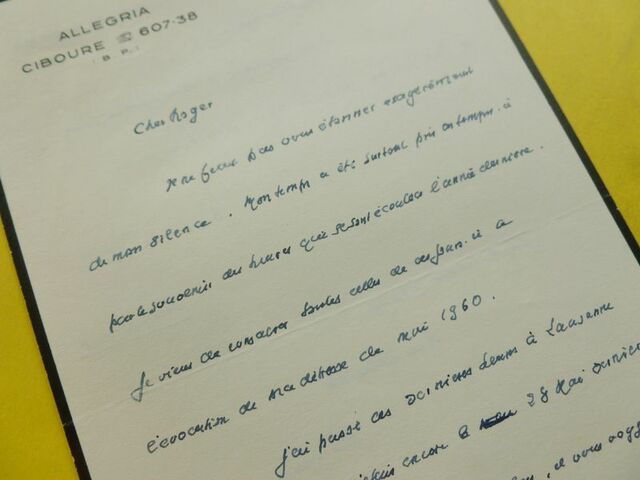 ALLEGRIA
CIBOURE ☏ 607-38
( B. P. )
Cher Roger
Je ne peux pas vous étonner exagérément
de mon silence. Mon temps a été surtout pris ce temps-ci
par le souvenir des heures qui se sont écoulées l'année dernière.
Je viens de consacrer toutes celles de ces jours-ci à
évocation de ma détresse de mai 1960.
J'ai passé ces derniers à Lausanne
encore le 28 Mai dernier
, et vous